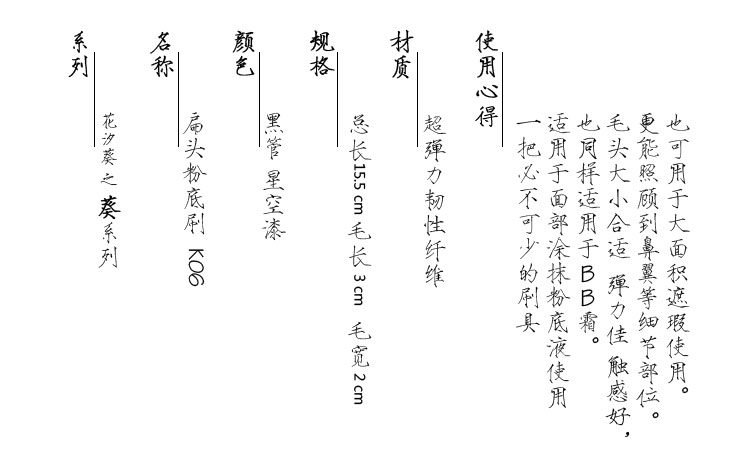 系列
花汐葵之葵系列
名称
扁头粉底刷 K06
颜色
黑管 星空漆
规格
总长15.5cm 毛长 3cm 毛宽 2cm
材质
超弹力韧性纤维
使用心得
一把必不可少的刷具
适用于面部涂抹粉底液使用
也同样适用于BB霜。
毛头大小合适 弹力佳 触感好，
更能照顾到鼻翼等细节部位。
也可用于大面积遮瑕使用。